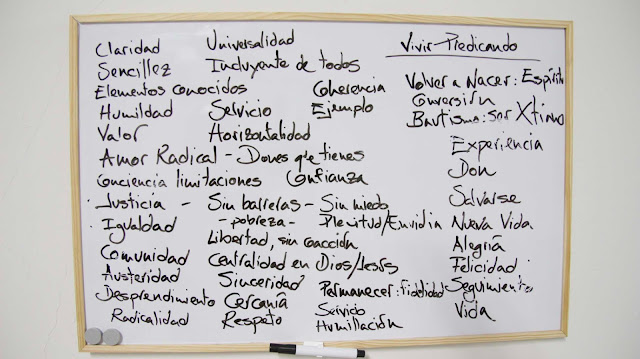 Claridad Universalidad
Sencillez Incluyente de todos
Elementos conocidos Coherencia
Humildad Servicio Ejemplo
Valor Horizontalidad
Amor Radical - Dones que tienes
Conciencia limitaciones Confianza
Justicia - Sin barreras - Sin miedo
Igualdad - pobreza - Plenitud/Envidia
Libertad, sin coacción
Comunidad Centralidad en Dios/Jesús
Austeridad Sinceridad
Desprendimiento Cercanía Permanecer: fidelidad
Radicalidad Respeto Servicio
Humillación
Vivir-Predicando
Volver a Nacer: Espíritu
Conversión
Bautismo: ser Xtiano
Experiencia
Don
Salvarse
Nueva Vida
Alegría
Felicidad
Seguimiento
Vida